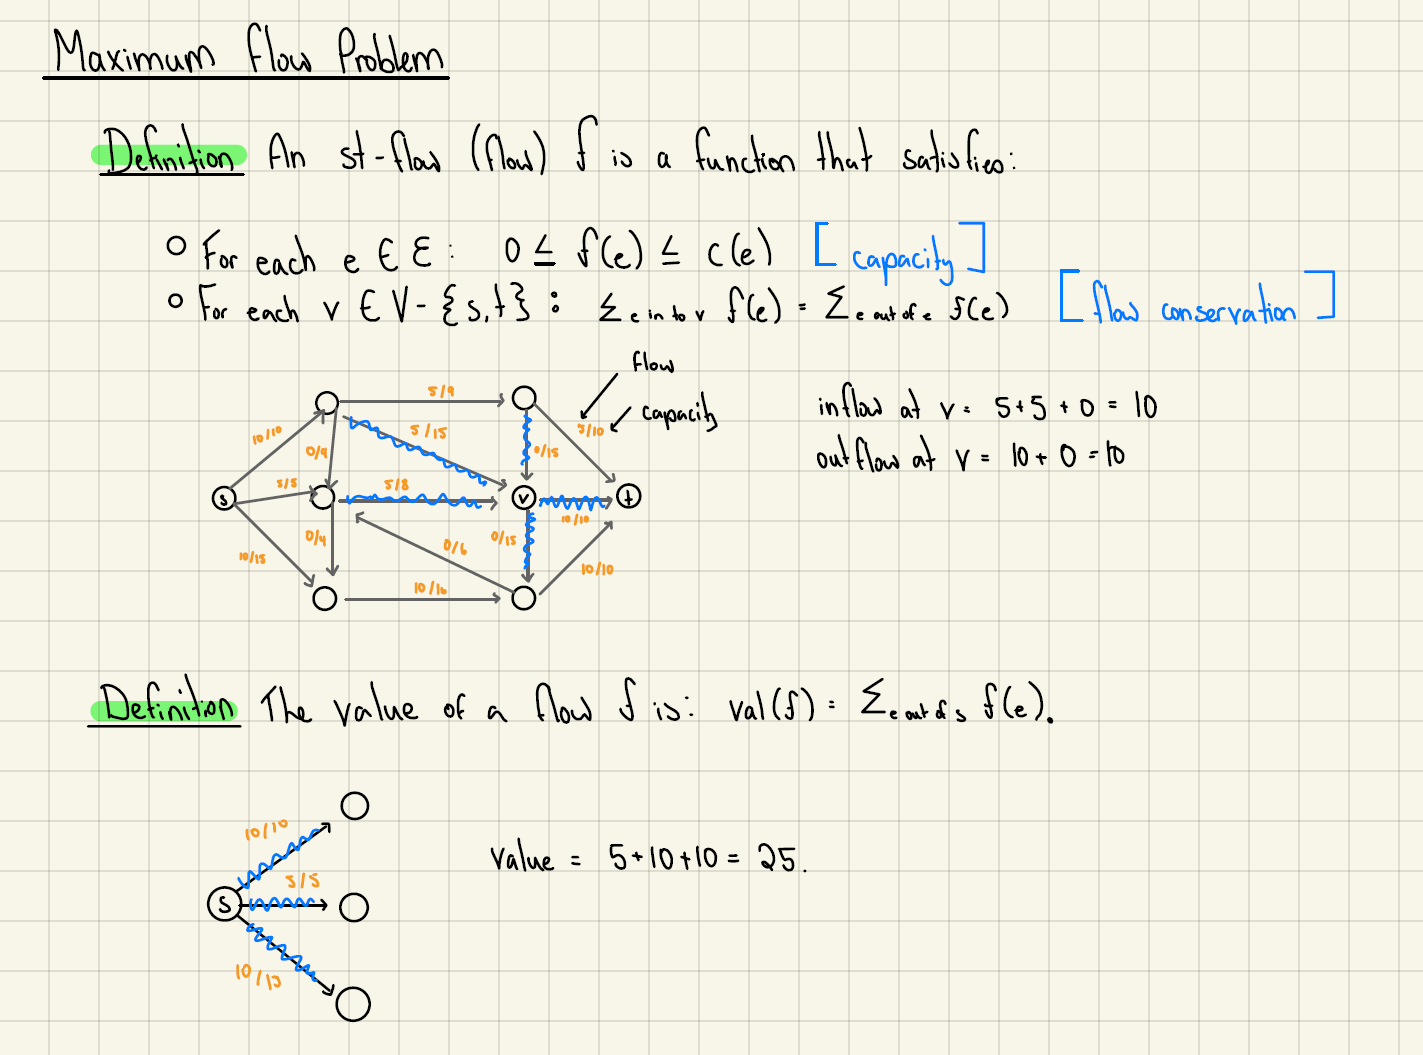 Maximum Flow Problem
Definition An st-flow (flow) f is a function that satisfies:
○ For each e ∈ E : 0 ≤ f(e) ≤ c(e) [capacity]
○ For each v ∈ V - {s,t} : Σ e in to v f(e) = Σ e out of e f(e) [flow conservation]
flow
capacity
5/9
10/10
0/9
5/15
0/15
5/10
s
5/5
5/8
v
10/10
t
10/15
0/4
0/6
0/15
10/10
10/16
inflow at v = 5+5+0 = 10
outflow at v = 10+0 = 10
Definition The value of a flow f is: val(f) = Σ e out of s f(e).
10/10
5/5
S
10/15
value = 5+10+10 = 25.